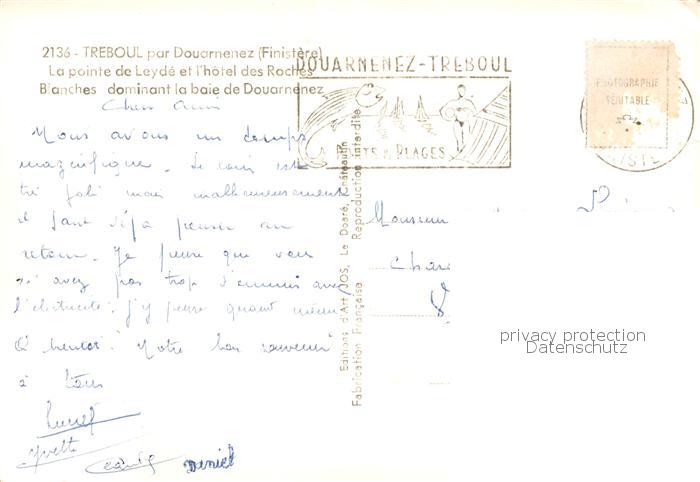 2136 - TREBOUL par Douarnenez (Finistère)
La pointe de Leydé et l'hôtel des Roches
Blanches dominant la baie de Douarnenez
DOUARNENEZ-TREBOUL
PORTS & PLAGES
PHOTOGRAPHIE
VÉRITABLE
Chers amis
Nous avons un temps
magnifique. Le coin est
très joli mais malheureusement
il faut déjà penser au
retour. Je pense que vous
n'avez pas trop d'ennuis avec
l'électricité. J'y pense quand même
A bientôt. Notre bon souvenir
à tous
Yvette
Daniel
Monsieur
Editions d'Art JOS, Le Doaré, Châteaulin
Fabrication Française Reproduction interdite
privacy protection
Datenschutz